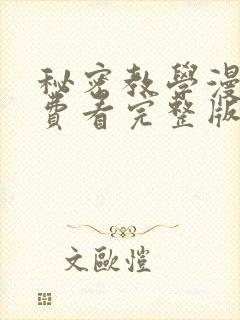 秘密教學漫
費看完整版
文歐愷